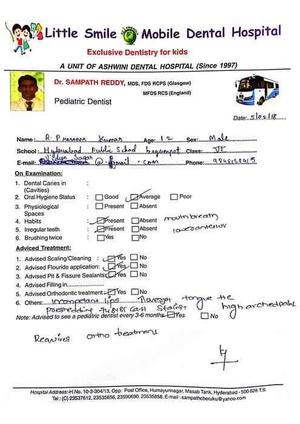 Little Smile Mobile Dental Hospital
Exclusive Dentistry for kids
A UNIT OF ASHWINI DENTAL HOSPITAL (Since 1997)
Dr. SAMPATH REDDY, MDS, FDS RCPS (Glasgow)
MFDS RCS (England)
Pediatric Dentist
Date:
Name: Kumar Age: 12 Sex: Male
School: Hyderabad Public School begumpet Class: VI
E-mail: @gmail.com Phone
On Examination:
1. Dental Caries in (Cavities)
2. Oral Hygiene Status Good Average Poor
3. Physiological Spaces Present Absent
4. Habits Present Absent mouthbreath
5. Irregular teeth Present Absent
6. Brushing twice Yes No
Adviced Treatment:
1. Advised Scaling/Cleaning Yes No
2. Advised Flouride application Yes No
3. Advised Pit & Fissure Sealants Yes No
4. Advised Filling in
5. Advised Orthodontic treatment Yes No
6. Others: Incompetent lips tongue high arched palate
Note: Advised to see a pediatric dentist every 3-6 months Yes No
Requires ortho treatment
Hospital Address: H.No. 10-3-304/13, Opp: Post Office, Humayunagar, Masab Tank, Hyderabad - 500 028 T.S.
Tel: (C) 23537612, 23535656, 23590690, 23535858, E-mail: sampathcheruku@yahoo.com